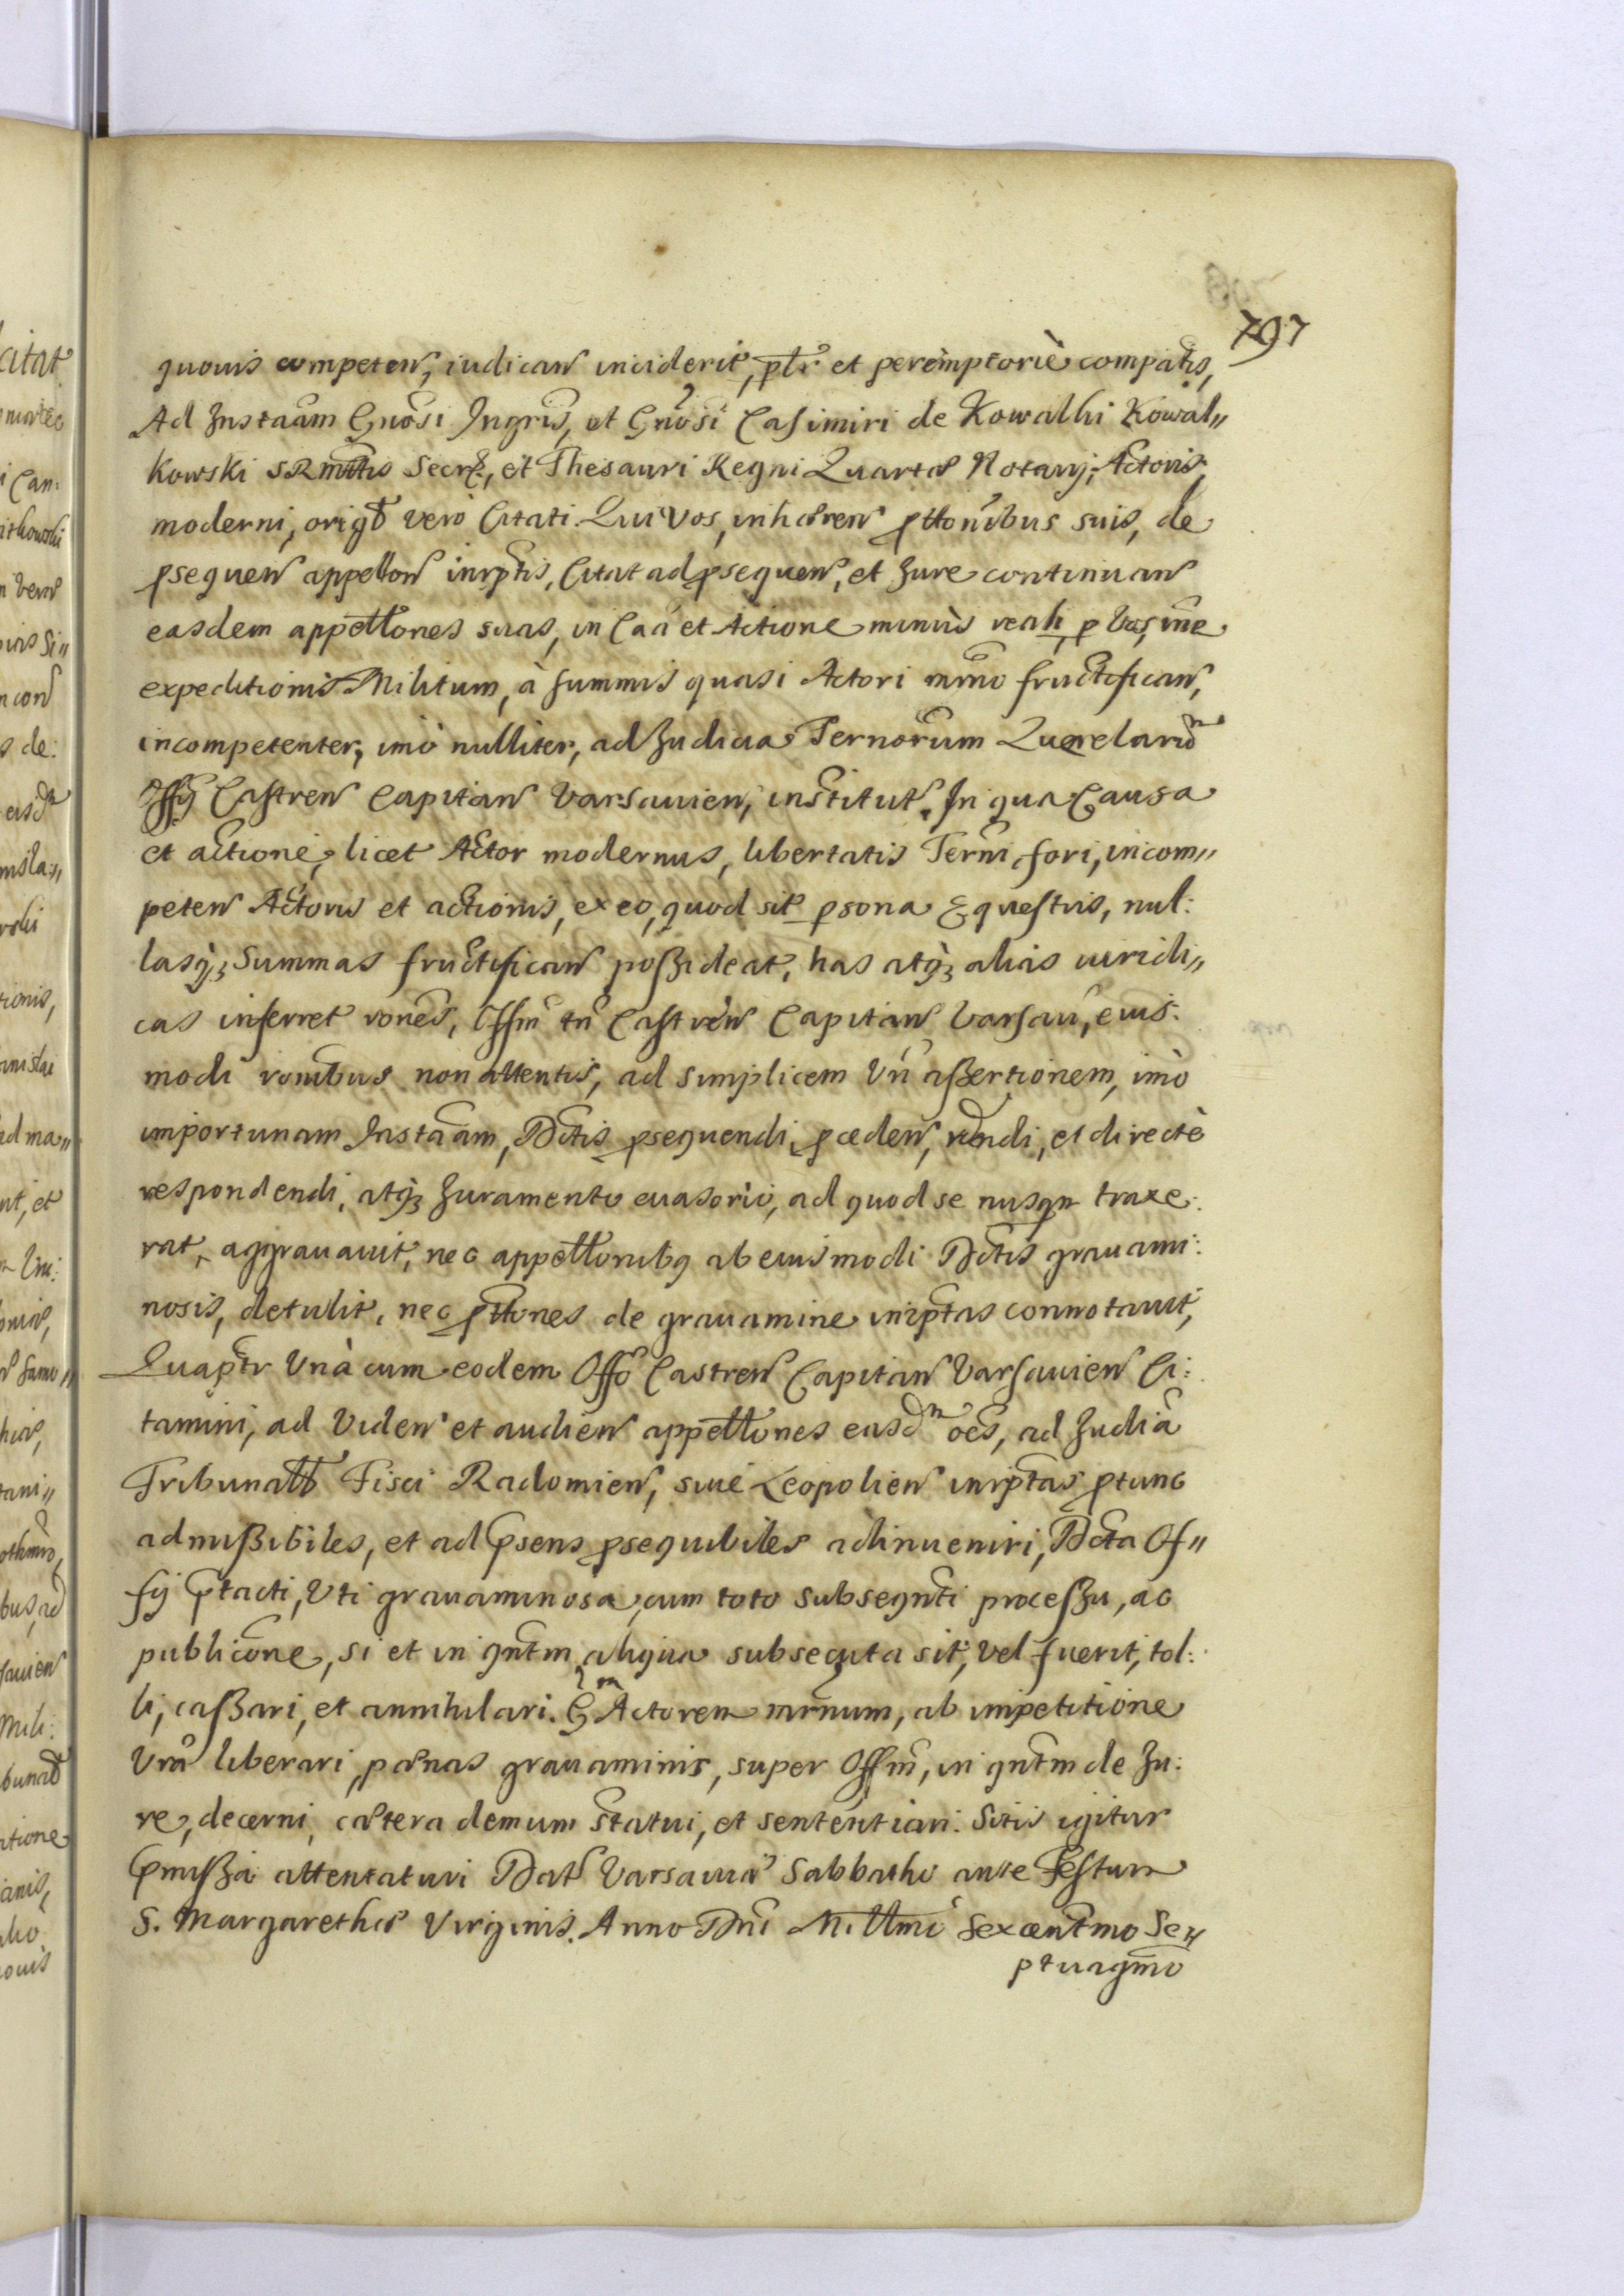 797
quouis competen, iudican inciderit, pltr et perèmptoriè compatis,
Ad Instaam Gnosi Ingris, et Gnosi Casimiri de Kowalki Kowal„
kowski SRMttis Secrz, et Thesauri Regni Quartæ Notarij, Actoris
moderni, origt vero Citati. Qui Vos, inhæren pttonibus suis, de
psequen appellon inrptis, Citat ad psequen, et Jure continuan
easdem appettones suas, in Caa et Actione minùs reali, p Vos, ine
expeditionis Militum, à summis quasi Actori mrno fructifican,
incompetenter, imò nulliter, ad Judicia Ternorum Querelaru
Offij Castren Capitan Varsauien, institut. In qua Causa
et actione, licet Actor modernus, libertatis Terni fori, incom„
peten Actoris et actionis, ex eo, quod sit psona Equestris, nul:
lasq3 Summas fructifican poßideat, has atq3 alias iuridi„
cas inferret rones, Offm tn Castren Capitan Varsau, eius:
modi ronibus non attentis, ad simplicem Vn aßertionem, imò
importunam Instaam, Dctis psequendi, pceden, rndi, et directè
respondendi, atq3 Juramento euasorio, ad quod se nusqm traxe:
rat, aggrauauit, nec appettonibq ab eiusmodi Dctis grauami:
nosis, detulit, nec pttones de grauamine inrptas connotauit,
Quaptr Vnà cum eodem Offo Castren Capitan Varsauien Ci:
tamini, ad Viden et audien appettones easdm oes, ad Judia
Tribunatt Fisci Radomien, siue Leopolien inrptas ptunc
admißibiles, et ad psens psequibiles adinueniri, Dcta Of„
fij ptacti, Vti grauaminosa, cum toto subseqnti proceßu, ac
publicone, si et in qntm aliqua subsequta sit, vel fuerit, tol:
li, caßari, et annihilari. Actorem mrnum, ab impetitione
Vra liberari, pænas grauaminis, super Offm, in qntm de Ju:
re, decerni, cætera demum statui, et sententiari. Sitis igitur
Pmißa attentaturi Dat Varsauiæ Sabbatho ante Festum
S. Margarethæ Virginis. Anno Dni Millmo Sexcentmo Se„
ptuagmo